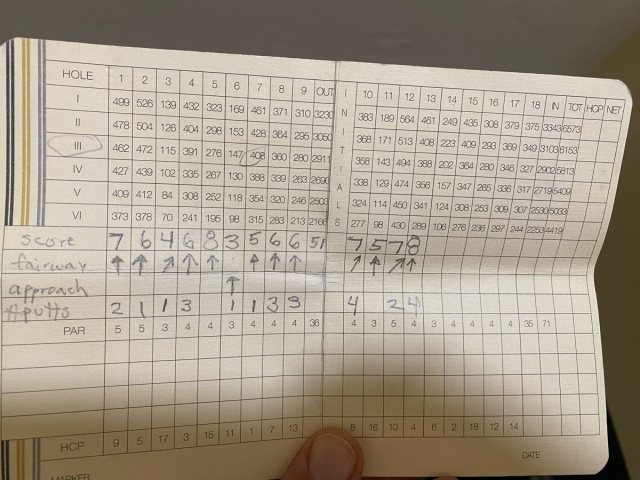 HOLE 1 2 3 4 5 6 7 8 9 OUT INITIALS 10 11 12 13 14 15 16 17 18 IN TOT HCP NET
I 499 526 139 432 323 169 461 371 310 3230 383 189 564 461 249 435 308 379 375 3343 6573
II 478 504 126 404 298 153 428 364 295 3050 368 171 513 408 223 409 293 369 349 3103 6153
III 462 472 115 391 276 147 408 360 280 2911 358 143 494 388 202 364 280 346 327 2902 5813
IV 427 439 102 335 267 130 388 339 263 2690 338 129 474 356 157 347 265 336 317 2719 5409
V 409 412 84 308 252 118 354 320 246 2503 324 114 450 341 124 308 253 309 307 2530 5033
VI 373 378 70 241 195 98 315 283 213 2166 277 98 430 289 106 276 236 297 244 2253 4419
score 7 6 4 6 8 3 5 6 6 51 7 5 7 8
fairway ↑ ↑ ↗ ↑ ↑ ↑ ↑ ↑ ↗ ↑ ↗ ↑
approach ↑
#putts 2 1 1 3 1 1 3 3 4 2 4
PAR 5 5 3 4 4 3 4 4 4 36 4 3 5 4 3 4 4 4 4 35 71
HCP 9 5 17 3 15 11 1 7 13 8 16 10 4 6 2 18 12 14
MARKER DATE